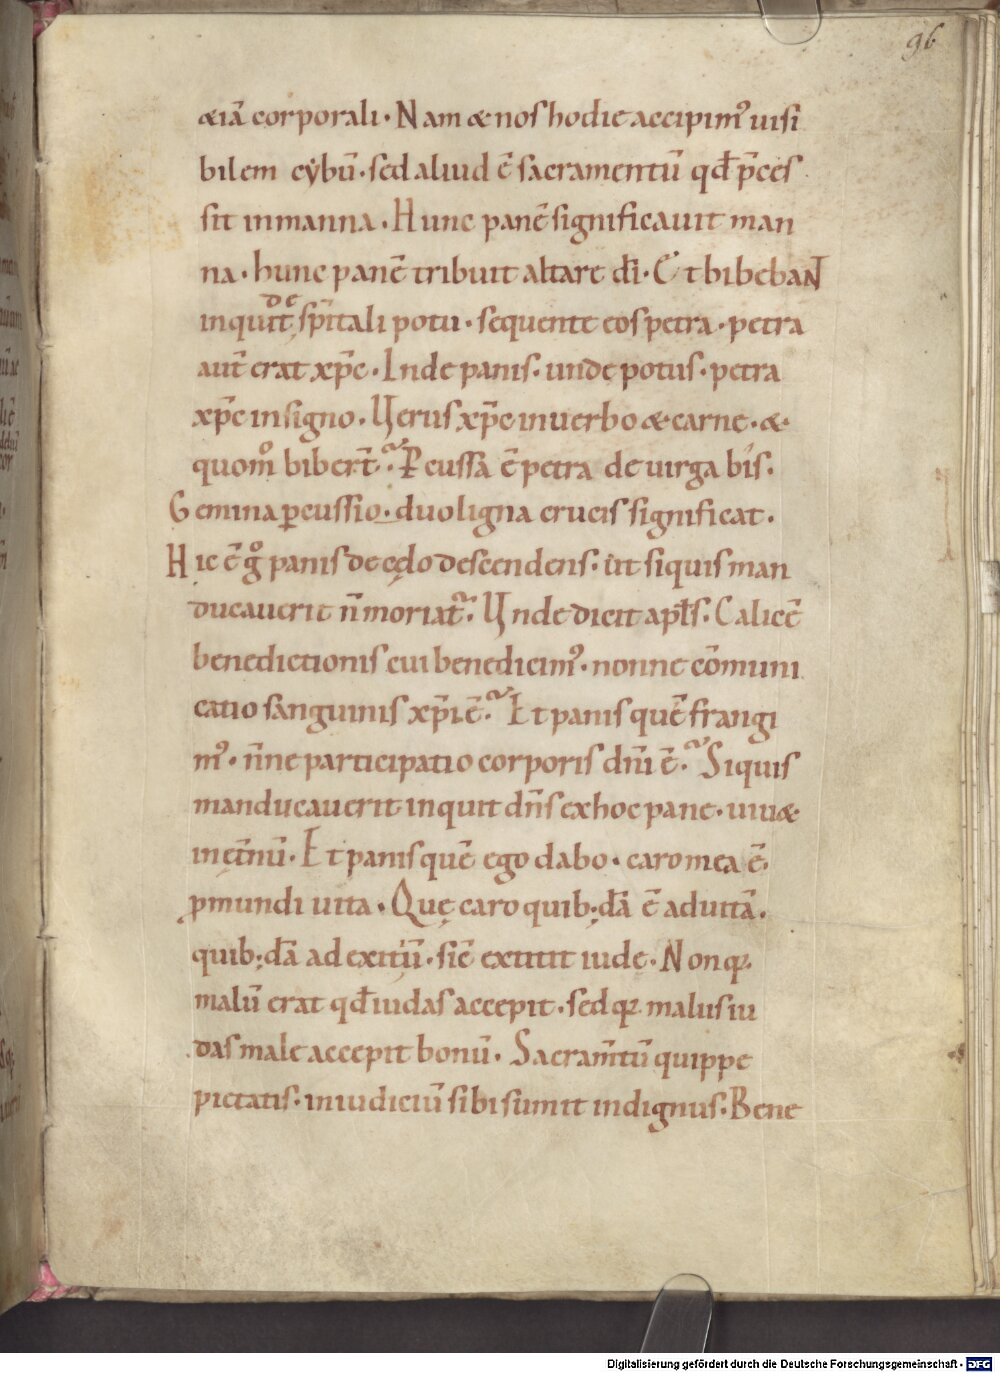 96
&iā corporali. Nam & nos hodie accipim᾿ uisi
bilem cybū. sed aliud ē sacramentū qđ p̄ces
sit inmanna. Hunc panē significauit man
na. hunc panē tribuit altare dī. Et bibebaNT
inquit de sp̄itali potu. sequente eos petra. petra
aut̄ erat xp̄c. Inde panis. unde potus. petra
xp̄c in signo. Uerus xp̄c inuerbo & carne. &
quom̊ biber̄t? Ꝑcussa ē petra de uirga bis.
Gemina ꝑcussio. duo ligna crucis significat.
Hic ē g̊ panis de cęlo descendens. ut siquis man
ducauerit n̄ moriat᷑. Unde dicit apl̄s. Calicē
benedictionis cui benedicim᾿. nonne cōmuni
catio sanguinis xp̄i ē? Et panis quē frangi
m᾿. n̄ne participatio corporis dn̄i ē? Siquis
manducauerit inquit dn̄s ex hoc pane. uiu&
in ęt̄nū. Et panis quē ego dabo. caro mea ē.
ꝓ mundi uita. Quę caro quib; dā ē ad uitā.
quib; dā ad exitiū. sic̄ extitit iudę. Non qꝛ
malū erat qđ iudas accepit. sed qꝛ malus iu
das male accepit bonū. Sacram̄tū quippe
pietatis. in iudiciū sibi sumit indignus. Bene
Digitalisierung gefördert durch die Deutsche Forschungsgemeinschaft - DFG